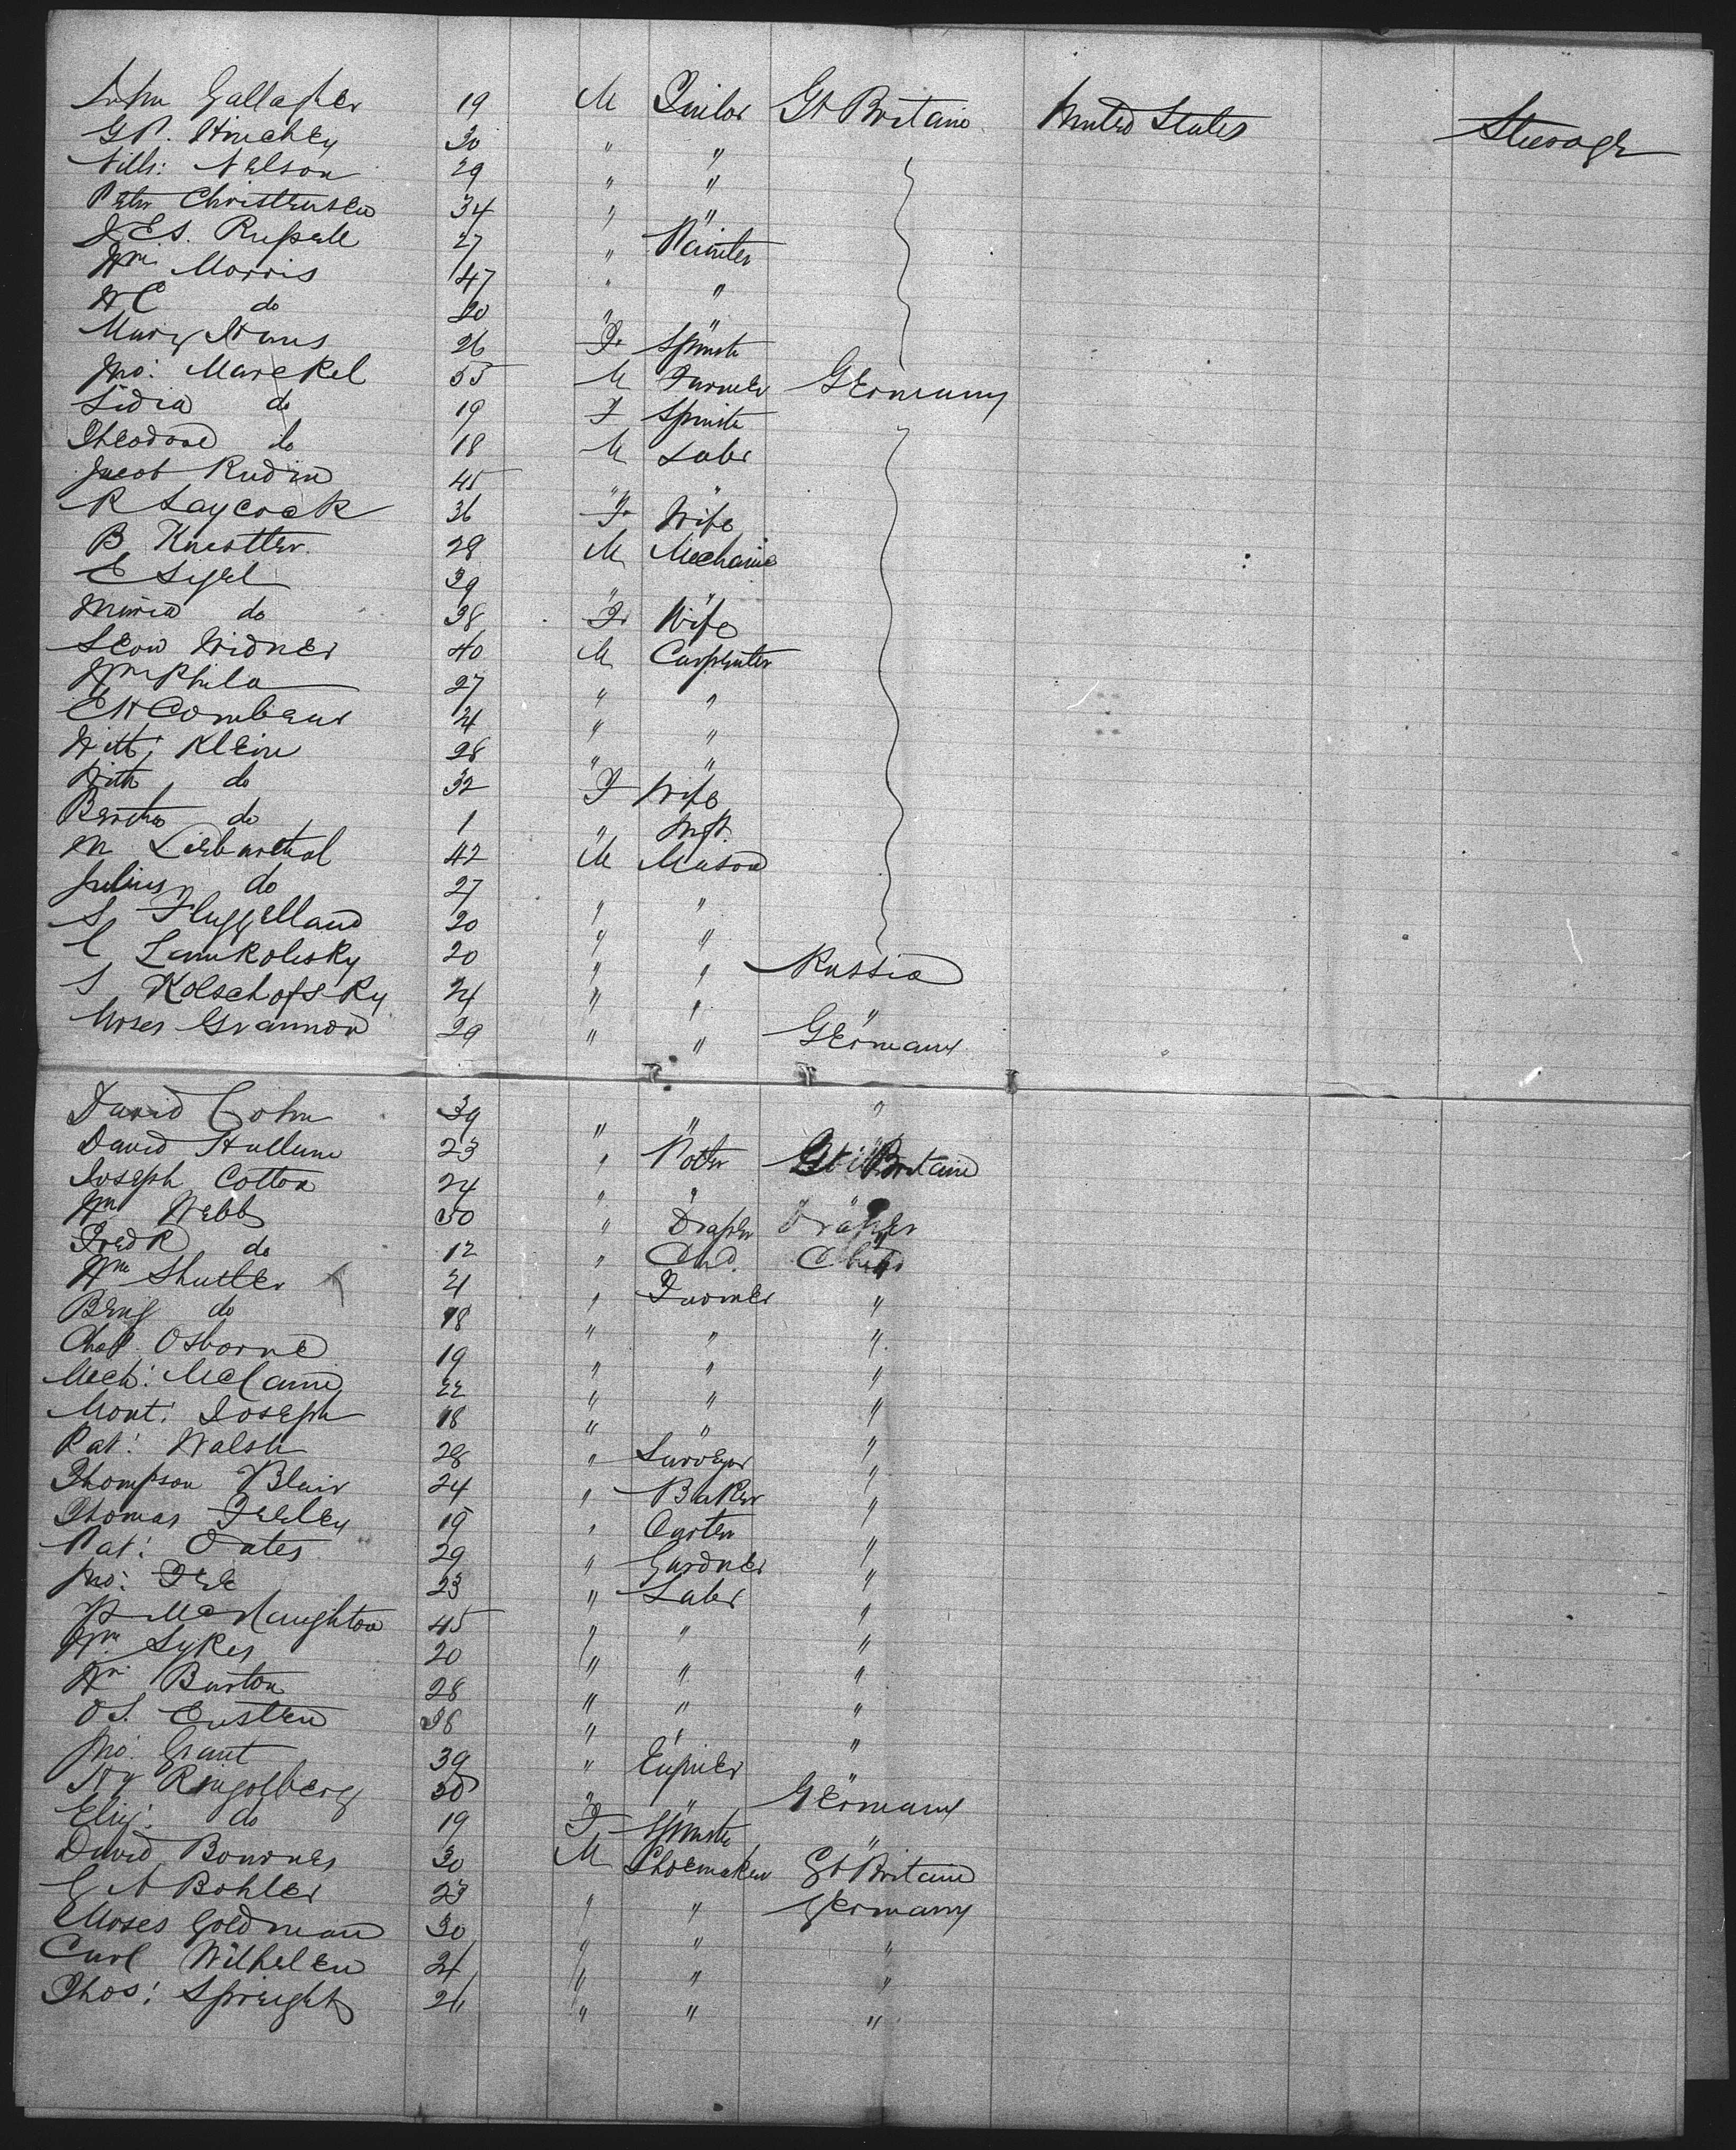 John Gallagher 19 M Tailor Gt Britain United States Steerage
G P. Hinchley 30 " "
Nills: Nelson 29 " "
Peter Christensen 34 " "
J E S. Russell 27 " Painter
Wm Morris 47 " "
W C do 20 " "
Mary 26 F. Spinstr
Jno: Marckel 55 M Farmer Germany
Lidia do 19 F Spinstr
Theodore do 18 M Labr
Jacob Rudin 45 " "
R Laycock 36 F. Wife
B Knestler 28 M Mechanic
E Sigel 39 " "
Maria do 38 F. Wife
Leon Widner 40 M Carpenter
Wm Phila 27 " "
E H " "
Klein 28 " "
do 32 F Wife
Bertha do 1 " Inft
M Liebarthal 42 M Mason
Julius do 27 " "
S. Fluggelland 20 " "
20 " " Russia
S Kolschofsky 24 " " "
Moses Grannon 29 " " Germany
David Cohn 39 " " "
David Hullum 23 " Potter Gt Britain
Joseph Cotton 24 " "
Wm Webb 50 " Draper Draper
Fredk do 12 " Chd. Child
Wm Shutler 21 " Farmer "
Benj do 18 " " "
Chas. Osborne 19 " " "
Mech: McCann 22 " " "
Mont: Joseph 18 " " "
Pat: Walsh 28 " Surveyor "
Thompson Blair 24 " Baker "
Thomas Feeley 19 " Carter "
Pat: Oates 29 " Gardner "
Jno: Fee 23 " Labr "
P McNaughton 45 " " "
Wm Sykes 20 " " "
Wm Burton 28 " " "
O S. Eusten 38 " " "
Jno: Grant 39 " Enginer "
Hy Ringolberg 30 " " Germany
Eliz: do 19 F Spinstr "
David Bowmes 30 M Shoemaker Gt Britain
G A Bohler 23 " " Germany
Moses Goldman 30 " " "
Carl Wilhelem 24 " " "
Thos: Spreight 26 " " "